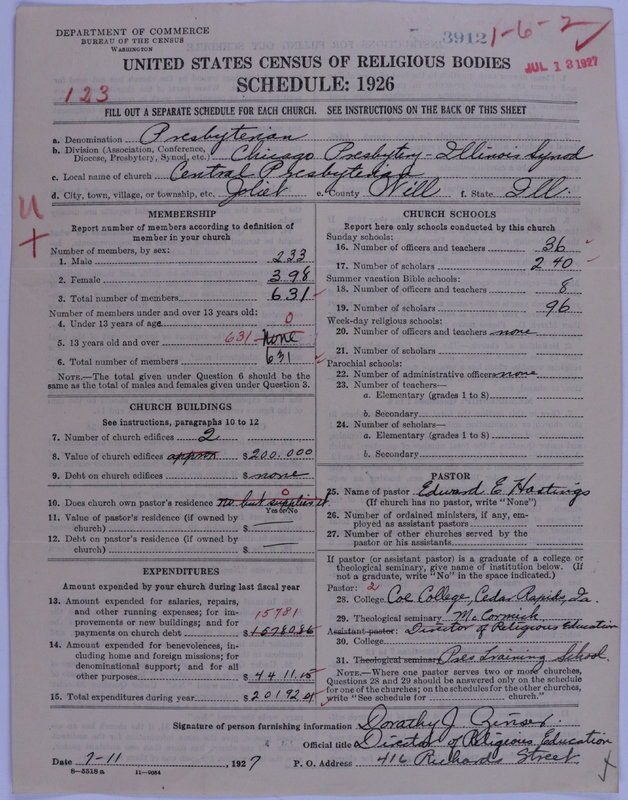 DEPARTMENT OF COMMERCE
BUREAU OF THE CENSUS
WASHINGTON
3912 1-6-2
UNITED STATES CENSUS OF RELIGIOUS BODIES
JUL 13 1927
SCHEDULE: 1926
123
FILL OUT A SEPARATE SCHEDULE FOR EACH CHURCH. SEE INSTRUCTIONS ON THE BACK OF THIS SHEET
a. Denomination Presbyterian
b. Division (Association, Conference, Diocese, Presbytery, Synod, etc.) Chicago Presbytery - Illinois Synod
c. Local name of church Central Presbyterian
d. City, town, village, or township, etc. Joliet e. County Will f. State Ill.
MEMBERSHIP
Report number of members according to definition of
member in your church
Number of members, by sex:
1. Male 233
2. Female 398
3. Total number of members 631
Number of members under and over 13 years old:
4. Under 13 years of age 0
5. 13 years old and over 631 none
6. Total number of members 631
NOTE.—The total given under Question 6 should be the
same as the total of males and females given under Question 3.
CHURCH BUILDINGS
See instructions, paragraphs 10 to 12
7. Number of church edifices 2
8. Value of church edifices approx $200.000
9. Debt on church edifices $ none
10. Does church own pastor's residence no but supplies it 0
Yes or No
11. Value of pastor's residence (if owned by
church) $
12. Debt on pastor's residence (if owned by
church) $
EXPENDITURES
Amount expended by your church during last fiscal year
13. Amount expended for salaries, repairs,
and other running expenses; for im-
provements or new buildings; and for
payments on church debt 15781 $15780.86
14. Amount expended for benevolences, in-
cluding home and foreign missions; for
denominational support; and for all
other purposes $4411.15
15. Total expenditures during year $20192.01
CHURCH SCHOOLS
Report here only schools conducted by this church
Sunday schools:
16. Number of officers and teachers 36
17. Number of scholars 240
Summer vacation Bible schools:
18. Number of officers and teachers 8
19. Number of scholars 96
Week-day religious schools:
20. Number of officers and teachers none
21. Number of scholars
Parochial schools:
22. Number of administrative officers none
23. Number of teachers—
a. Elementary (grades 1 to 8)
b. Secondary
24. Number of scholars—
a. Elementary (grades 1 to 8)
b. Secondary
PASTOR
25. Name of pastor Edward E Hastings
(If church has no pastor, write "None")
26. Number of ordained ministers, if any, em-
ployed as assistant pastors
27. Number of other churches served by the
pastor or his assistants
If pastor (or assistant pastor) is a graduate of a college or
theological seminary, give name of institution below. (If
not a graduate, write "No" in the space indicated.)
Pastor: 2
28. College Coe College, Cedar Rapids, Ia.
29. Theological seminary McCormick
Assistant pastor: Director of Religious Education
30. College
31. Theological seminary Pres Training School
NOTE.—Where one pastor serves two or more churches,
Questions 28 and 29 should be answered only on the schedule
for one of the churches; on the schedules for the other churches,
write "See schedule for church."
Signature of person furnishing information Dorathy J.
Official title Director of Religious Education
Date 7-11, 1927 P. O. Address 416 Richards Street
8—5518 a 11—9084